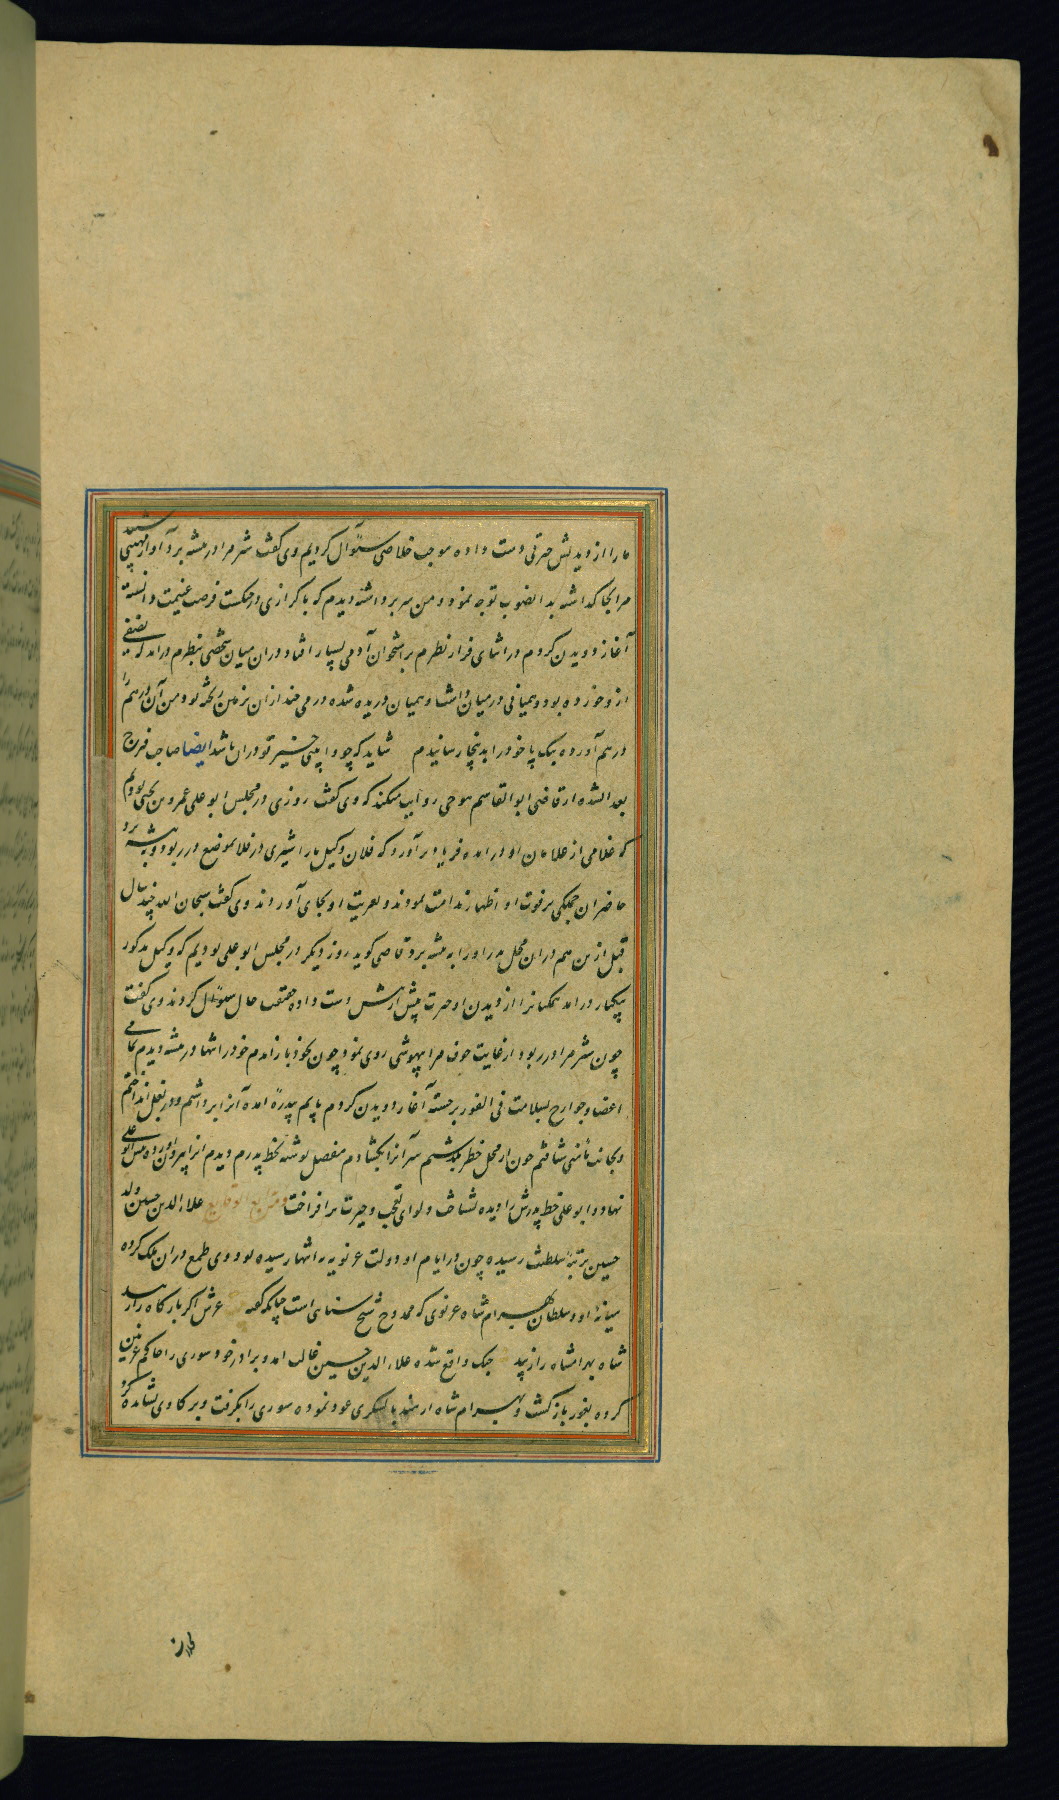 ما را از دیدنش حیرتی دست داده موجب خلاصی سئوال کردیم وی گفت شیر مرا در بیشه برد آواز مهیبی شنید
مرا بجا گذاشته بدانصوب توجه نمود و من سر برداشته دیدم که با کرازی در جنکست فرصت غنیمت دانسته
آغاز دویدن کردم در اثنای فرار نظرم بر استخوان آدمی بسیار افتاد و در ان میان شخصی بنظرم درامد که نصفی
از و خورده بود و همیانی در میان داشت و همیان دریده شده درمی چند از ان بزمین ریخته بود و من آن درهم را
درهم آورده بیک پا خود را بدینجا رسانیدم شاید که چو وابینی خیر تو در ان باشد ایضا صاحب فرج
بعد الشده از قاضی ابو القاسم روایت میکند که وی گفت روزی در مجلس ابو علی عمر و بن یحیی بودم
که غلامی از غلامان او درامده فریاد بر آورد که فلان وکیل ما را شیری در فلان موضع در ربود و به بیشه برد
حاضران جملکی بر فوت او اظهار ندامت نمودند و تعزیت او بجای آوردند وی گفت سبحان الله چند سال
قبل ازین هم در ان محل پدر او را به بیشه برد قاضی کوید روز دیکر در مجلس ابو علی بودیم که وکیل مذکور
بیکبار درامد همکنانرا از دیدن او حیرت بیش از پیش دست داده حقیقت حال سئوال کردند وی گفت
چون شیر مرا در ربود از غایت خوف مرا بیهوشی روی نمود چون بخود باز امدم خود را تنها در بیشه دیدم تمامی
اعضا و جوارح بسلامت فی الفور برجسته آغاز دویدن کردم پایم بدره امده آنرا برداشتم و در بغل انداختم
و بجانب مأمنی شتافتم چون از محل خطر بگذشتم سر آنرا بکشادم مفصل نوشته بخط پدرم دیدم انرا بیرون آورده پیش ابو علی
نهاد و ابو علی خط پدرش را دیده بشناخت و لوای تعجب و حیرت بر افراخت و من بدایع وقایع علاء الدین حسین ولد
حسین بمرتبه سلطنت رسیده چون در ایام او دولت غزنویه به انتها رسیده بود وی طمع در ان ملک کرده
میانه او و سلطان بهرام شاه غزنوی که ممدوح شیخ سنای است چنانکه گفته عرش اکر بارکاه را زیبد
شاه بهرامشاه را زیبد جنک واقع شده علاء الدین حسین غالب امد و برادر خود سوری را حاکم غزنین
کرده بغور باز کشت و بهرام شاه از هند با لشکری عود نموده سوری را بکرفت و بر کاوی نشانده کرد